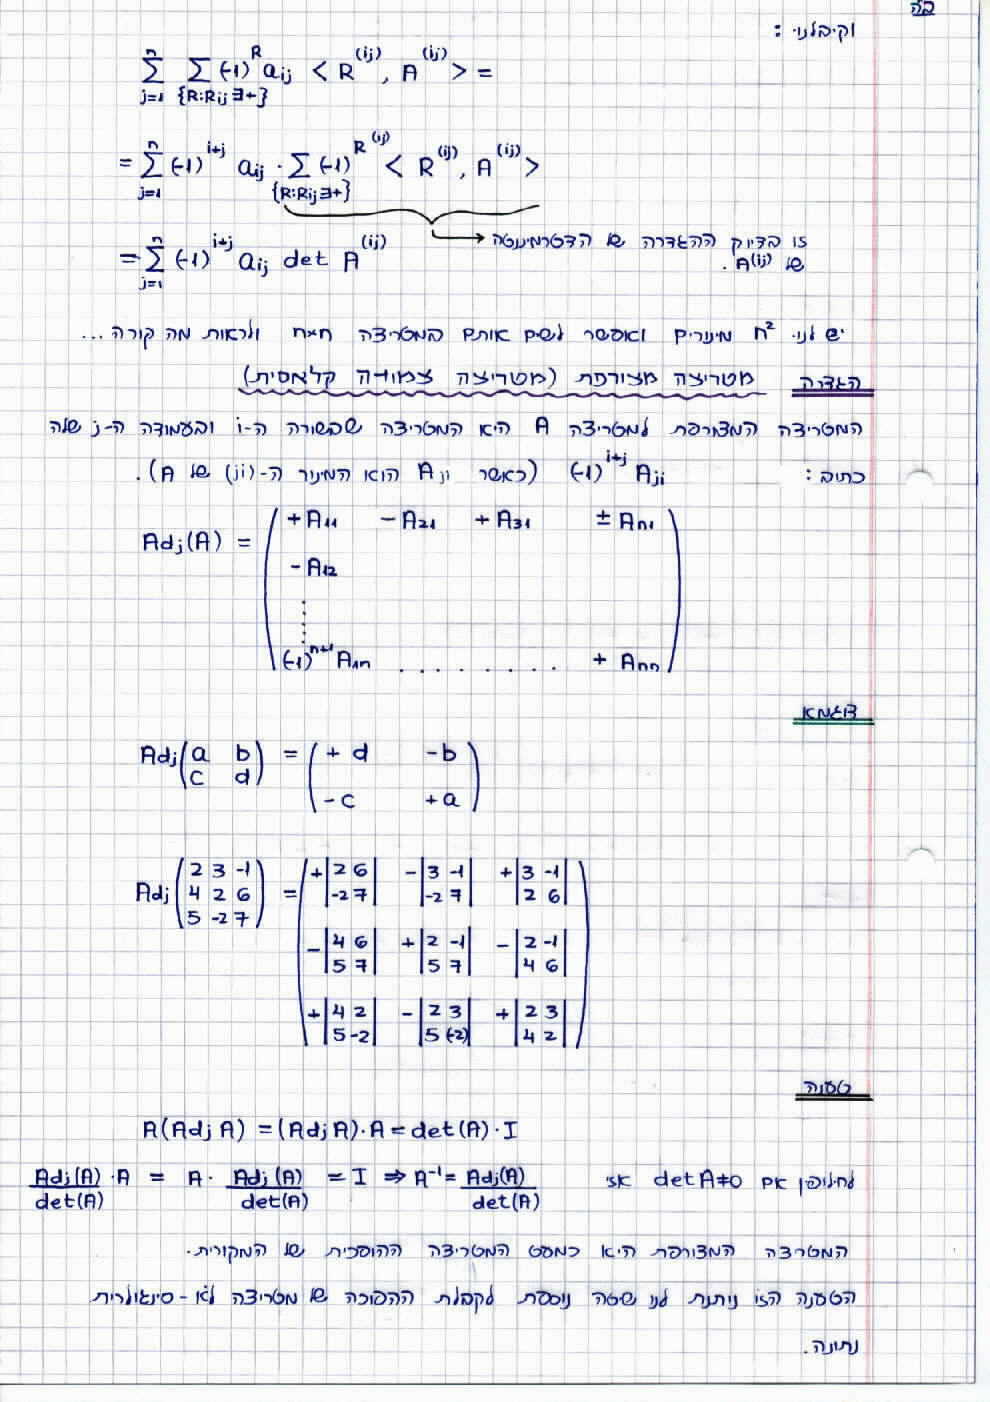 בה
וקיבלנו:
n n
∑ ∑ (-1)^R a_ij < R^(ij), A^(ij) > =
j=1 {R:R_ij∋+}
= ∑ (-1)^i+j a_ij · ∑ (-1)^R^(ij) < R^(ij), A^(ij) >
j=1 {R:R_ij∋+}
= ∑ (-1)^i+j a_ij det A^(ij) → זו בדיוק ההגדרה של הדטרמיננטה
j=1 של A^(ij).
יש לנו n² מינורים ואפשר לשים אותם במטריצה n×n ולראות מה קורה...
הגדרה מטריצה מצורפת (מטריצה צמודה קלאסית)
המטריצה המצורפת למטריצה A היא המטריצה שבשורה ה-i ובעמודה ה-j שלה
כתוב: (-1)^i+j A_ji (כאשר A_ji הוא המינור ה-(ji) של A).
Adj(A) = ( +A_11 -A_21 +A_31 ±A_n1
-A_12
⋮
(-1)^n+1 A_1n ........ + A_nn )
דוגמא
Adj ( a b = ( + d -b
c d ) -c +a )
Adj ( 2 3 -1 = ( + | 2 6 | - | 3 -1 | + | 3 -1 |
4 2 6 | -2 7 | | -2 7 | | 2 6 |
5 -2 7 )
- | 4 6 | + | 2 -1 | - | 2 -1 |
| 5 7 | | 5 7 | | 4 6 |
+ | 4 2 | - | 2 3 | + | 2 3 |
| 5 -2 | | 5 (-2) | | 4 2 | )
טענה
A(Adj A) = (Adj A)·A = det(A)·I
לחילופין אם det A≠0 אז Adj(A)/det(A) · A = A · Adj(A)/det(A) = I ⇒ A^-1 = Adj(A)/det(A)
המטריצה המצורפת היא כמעט המטריצה ההופכית של המקורית.
הטענה הזו נותנת לנו שיטה נוספת לקבלת ההפוכה של מטריצה לא-סינגולרית
נתונה.